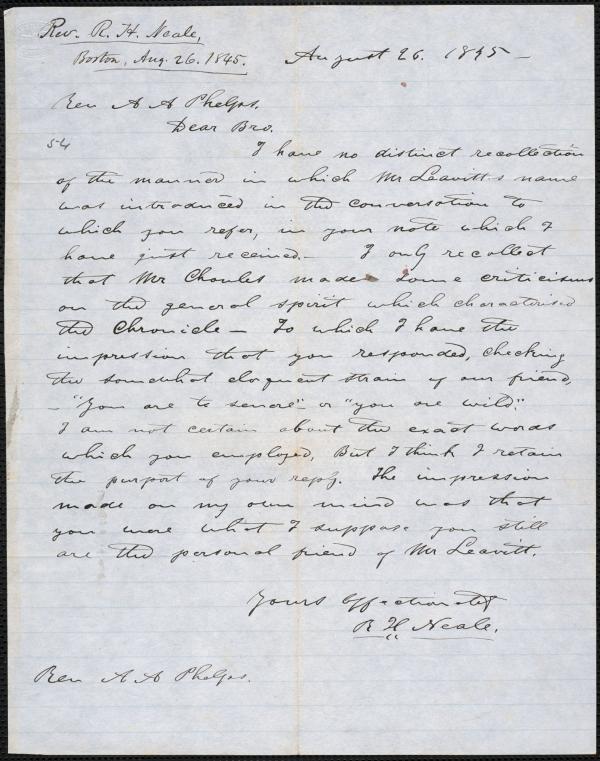 Rev. R. H. Neale,
Boston, Aug. 26. 1845.
August 26. 1845 —
Rev A A Phelps.
Dear Bro.
54
I have no distinct recollection
of the manner in which Mr Leavitt's name
was introduced in the conversation to
which you refer, in your note which I
have just received. — I only recollect
that Mr Choules made some criticisms
on the general spirit which characterised
the Chronicle — To which I have the
impression that you responded, checking
the somewhat eloquent strain of our friend,
— "You are to severe" — or "you are wild".
I am not certain about the exact words
which you employed, But I think I retain
the purport of your reply. The impression
made on my own mind was that
you were what I suppose you still
are the personal friend of Mr Leavitt.
Yours affectionately
R H Neale.
Rev A A Phelps.